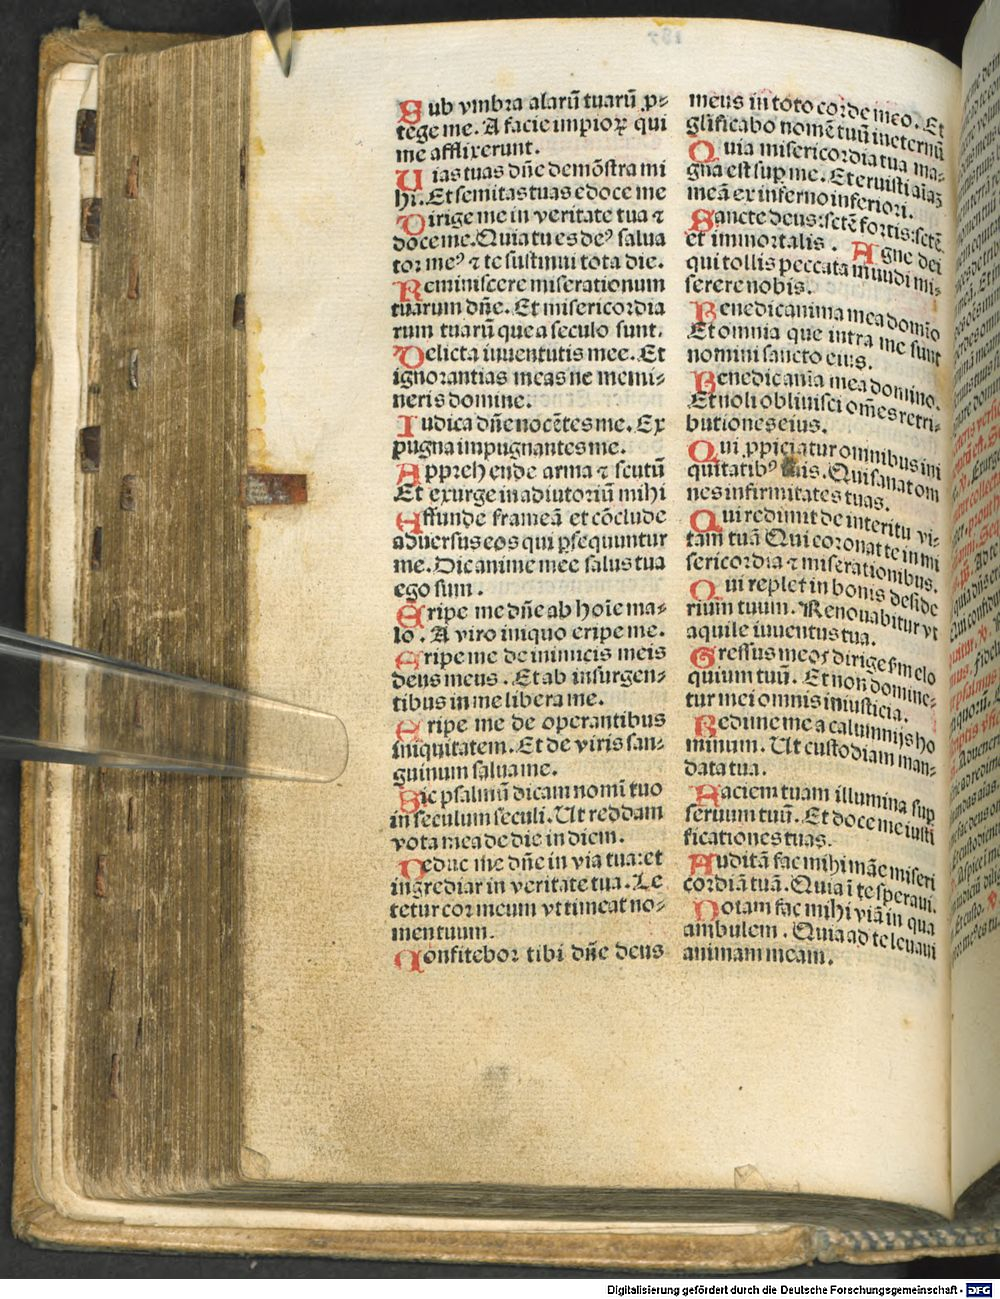 Sub vmbra alarū tuarū ꝓ⸗
tege me. A facie impioꝝ qui
me afflixerunt.
Uias tuas dn̄e demōstra mi
hi. Et semitas tuas edoce me
Dirige me in veritate tua ⁊
doce me. Quia tu es deꝰ salua
tor meꝰ ⁊ te sustinui tota die.
Reminiscere miserationum
tuarum dn̄e. Et misericordia
rum tuarū que a seculo sunt.
Delicta iuuentutis mee. Et
ignorantias meas ne memi⸗
neris domine.
Iudica dn̄e nocētes me. Ex
pugna impugnantes me.
Apprehende arma ⁊ scutū
Et exurge in adiutoriū mihi
Effunde frameā et cōclude
aduersus eos qui ꝑsequuntur
me. Dic anime mee salus tua
ego sum.
Eripe me dn̄e ab hoīe ma⸗
lo. A viro iniquo eripe me.
Eripe me de inimicis meis
deus meus. Et ab insurgen⸗
tibus in me libera me.
Eripe me de operantibus
iniquitatem. Et de viris san⸗
guinum salua me.
Sic psalmū dicam nomī tuo
in seculum seculi. Ut reddam
vota mea de die in diem.
Deduc me dn̄e in via tua: et
ingrediar in veritate tua. Le
tetur cor meum vt timeat no⸗
men tuum.
Confitebor tibi dn̄e deus
meus in toto corde meo. Et
glificabo nomē tuū in eternū
Quia misericordia tua ma⸗
gna est suꝑ me. Et eruisti aīaꝫ
meā ex inferno inferiori.
Sancte deus: sctē fortis: sctē
et immortalis. Agne dei
qui tollis peccata mundi mi⸗
serere nobis.
Benedic anima mea domīo
Et omnia que intra me sunt
nomini sancto eius.
Benedic anīa mea domino.
Et noli obliuisci oēs retri⸗
butiones eius.
Qui ꝓpiciatur omnibus ini
quitatibꝰ tuis. Qui sanat om
nes infirmitates tuas.
Qui redimit de interitu vi⸗
tam tuā Qui coronat te in mi
sericordia ⁊ miserationibus.
Qui replet in bonis deside
rium tuum. Renouabitur vt
aquile iuuentus tua.
Gressus meos dirige ſm elo
quium tuū. Et non domine⸗
tur mei omnis iniusticia.
Redime me a calumnijs ho
minum. Ut custodiam man⸗
data tua.
Faciem tuam illumina suꝑ
seruum tuū. Et doce me iusti
ficationes tuas.
Auditā fac mihi māe miseri
cordiā tuā. Quia ī te speraui.
Notam fac mihi viā in qua
ambulem. Quia ad te leuaui
animam meam.
Digitalisierung gefördert durch die Deutsche Forschungsgemeinschaft - DFG